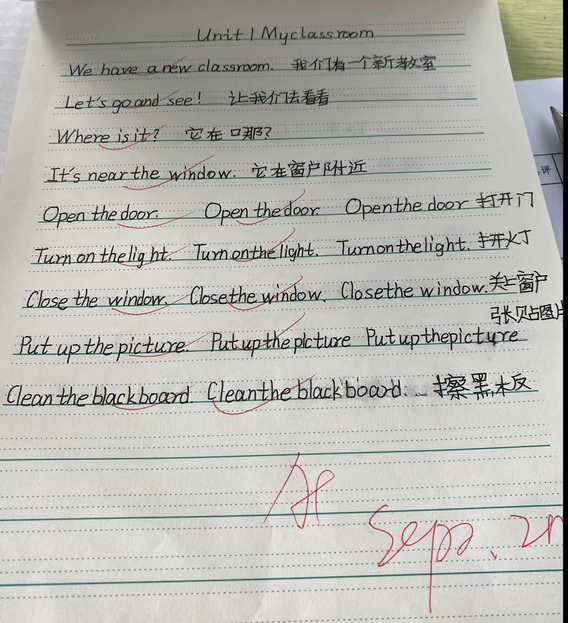 Unit 1 My classroom
We have a new classroom. 我们有一个新教室
Let's go and see! 让我们去看看
Where is it? 它在哪?
It's near the window. 它在窗户附近
Open the door. Open the door. Open the door 打开门
Turn on the light. Turn on the light. Turn on the light. 打开灯
Close the window. Close the window. Close the window. 关上窗户
张贴图片
Put up the picture. Put up the picture Put up the picture
Clean the blackboard Clean the blackboard. 擦黑板